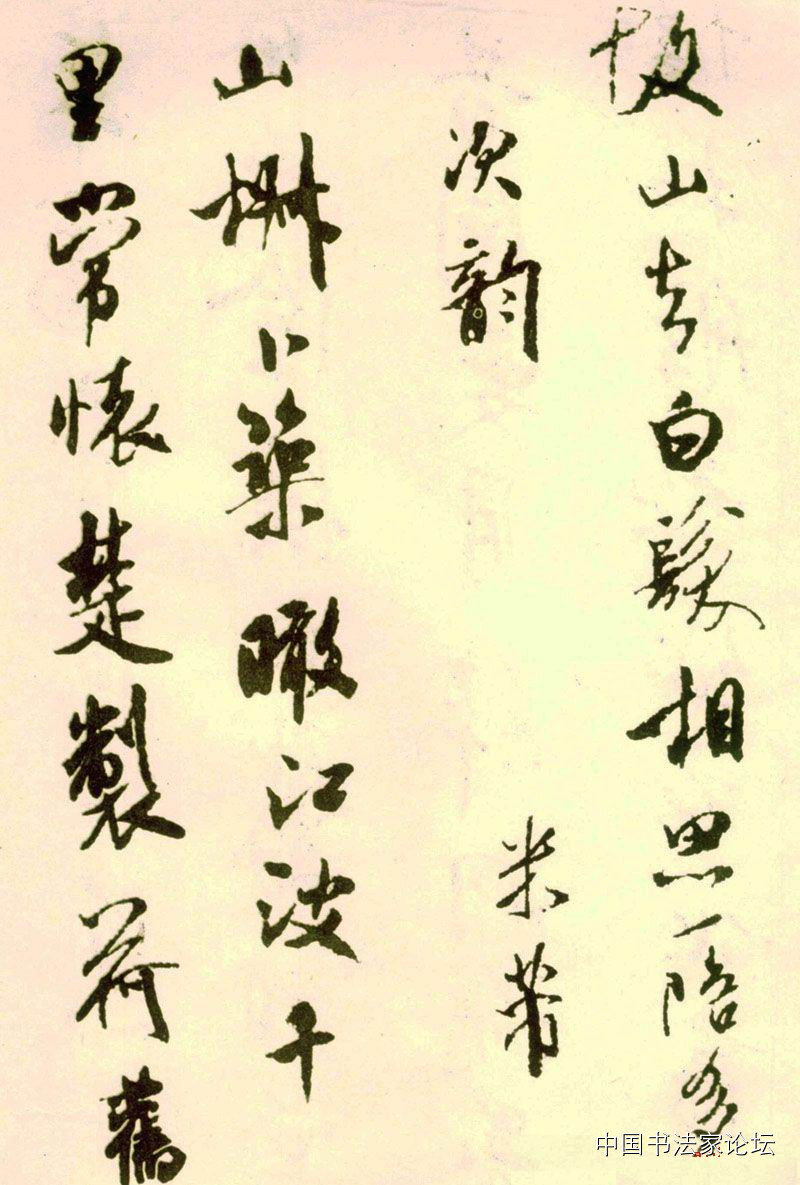 故山去白髮相思一陪多
次韵 米芾
山椒卜築瞰江波千
里常懷楚製荷舊
中国书法家论坛